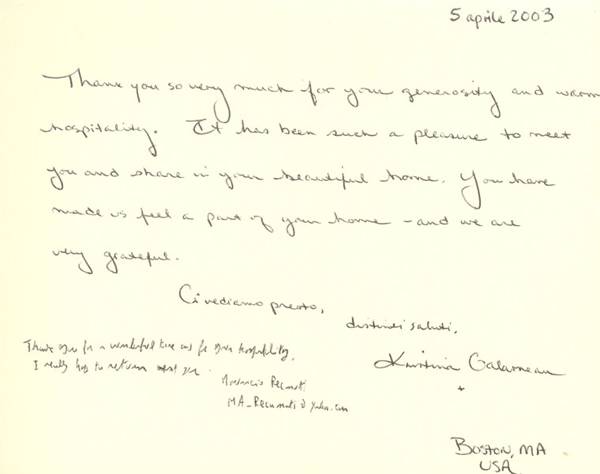 5 aprile 2003
Thank you so very much for your generosity and warm
hospitality. It has been such a pleasure to meet
you and share in your beautiful home. You have
made us feel a part of your home - and we are
very grateful.
Ci vediamo presto,
distinti saluti,
Thank you for a wonderful time and for your hospitality.
I really hope to return next year.
Kristina Galarneau
+
MA_Recumuti@yahoo.com
Boston, MA
USA